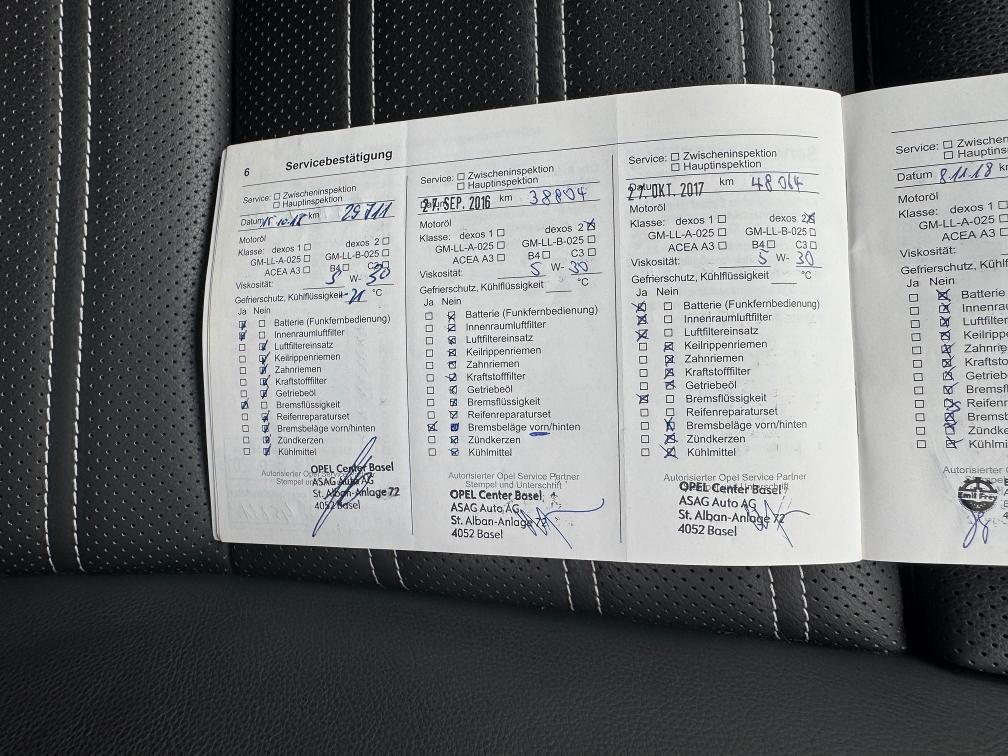 6 Servicebestätigung
Service: ☐ Zwischeninspektion
☐ Hauptinspektion
Datum km 29711
Motoröl
Klasse: dexos 1 ☐ dexos 2 ☐
GM-LL-A-025 ☐ GM-LL-B-025 ☐
ACEA A3 ☐ B4 ☐ C3 ☐
Viskosität: 5 W- 30
Gefrierschutz, Kühlflüssigkeit -21 °C
Ja Nein
☒ ☐ Batterie (Funkfernbedienung)
☒ ☐ Innenraumluftfilter
☐ ☒ Luftfiltereinsatz
☐ ☒ Keilrippenriemen
☐ ☒ Zahnriemen
☐ ☒ Kraftstofffilter
☐ ☒ Getriebeöl
☒ ☐ Bremsflüssigkeit
☐ ☒ Reifenreparaturset
☐ ☒ Bremsbeläge vorn/hinten
☐ ☒ Zündkerzen
☐ ☒ Kühlmittel
OPEL Center Basel
ASAG Auto AG
St. Alban-Anlage 72
4052 Basel
Service: ☐ Zwischeninspektion
☐ Hauptinspektion
27. SEP. 2016 km 38804
Motoröl
Klasse: dexos 1 ☐ dexos 2 ☒
GM-LL-A-025 ☐ GM-LL-B-025 ☐
ACEA A3 ☐ B4 ☐ C3 ☐
Viskosität: 5 W- 30
Gefrierschutz, Kühlflüssigkeit °C
Ja Nein
☐ ☒ Batterie (Funkfernbedienung)
☐ ☒ Innenraumluftfilter
☐ ☒ Luftfiltereinsatz
☐ ☒ Keilrippenriemen
☐ ☒ Zahnriemen
☐ ☒ Kraftstofffilter
☐ ☒ Getriebeöl
☐ ☒ Bremsflüssigkeit
☐ ☒ Reifenreparaturset
☒ ☒ Bremsbeläge vorn/hinten
☐ ☒ Zündkerzen
☐ ☒ Kühlmittel
Autorisierter Opel Service Partner
Stempel und Unterschrift
OPEL Center Basel
ASAG Auto AG
St. Alban-Anlage 72
4052 Basel
Service: ☐ Zwischeninspektion
☐ Hauptinspektion
27. OKT. 2017 km 48064
Motoröl
Klasse: dexos 1 ☐ dexos 2 ☒
GM-LL-A-025 ☐ GM-LL-B-025 ☐
ACEA A3 ☐ B4 ☐ C3 ☐
Viskosität: 5 W- 30
Gefrierschutz, Kühlflüssigkeit °C
Ja Nein
☒ ☐ Batterie (Funkfernbedienung)
☒ ☐ Innenraumluftfilter
☒ ☐ Luftfiltereinsatz
☐ ☒ Keilrippenriemen
☐ ☒ Zahnriemen
☐ ☒ Kraftstofffilter
☐ ☒ Getriebeöl
☒ ☐ Bremsflüssigkeit
☐ ☐ Reifenreparaturset
☐ ☒ Bremsbeläge vorn/hinten
☐ ☒ Zündkerzen
☐ ☒ Kühlmittel
Autorisierter Opel Service Partner
OPEL Center Basel
ASAG Auto AG
St. Alban-Anlage 72
4052 Basel
Service: ☐ Zwischeninspektion
☐ Hauptinspektion
Datum 8.11.18
Motoröl
Klasse: dexos 1
GM-LL-A-025
ACEA A3 ☐
Viskosität:
Gefrierschutz, Kühlflüssig
Ja Nein
☐ ☒ Batterie
☐ ☒ Innenrau
☐ ☒ Luftfilter
☐ ☒ Keilrippe
☐ ☒ Zahnrie
☐ ☒ Kraftsto
☐ ☒ Getrieb
☐ ☒ Bremsfl
☐ ☒ Reifenr
☐ ☒ Bremst
☐ ☒ Zündke
☐ ☒ Kühlmi
Autorisierter
Emil Frey